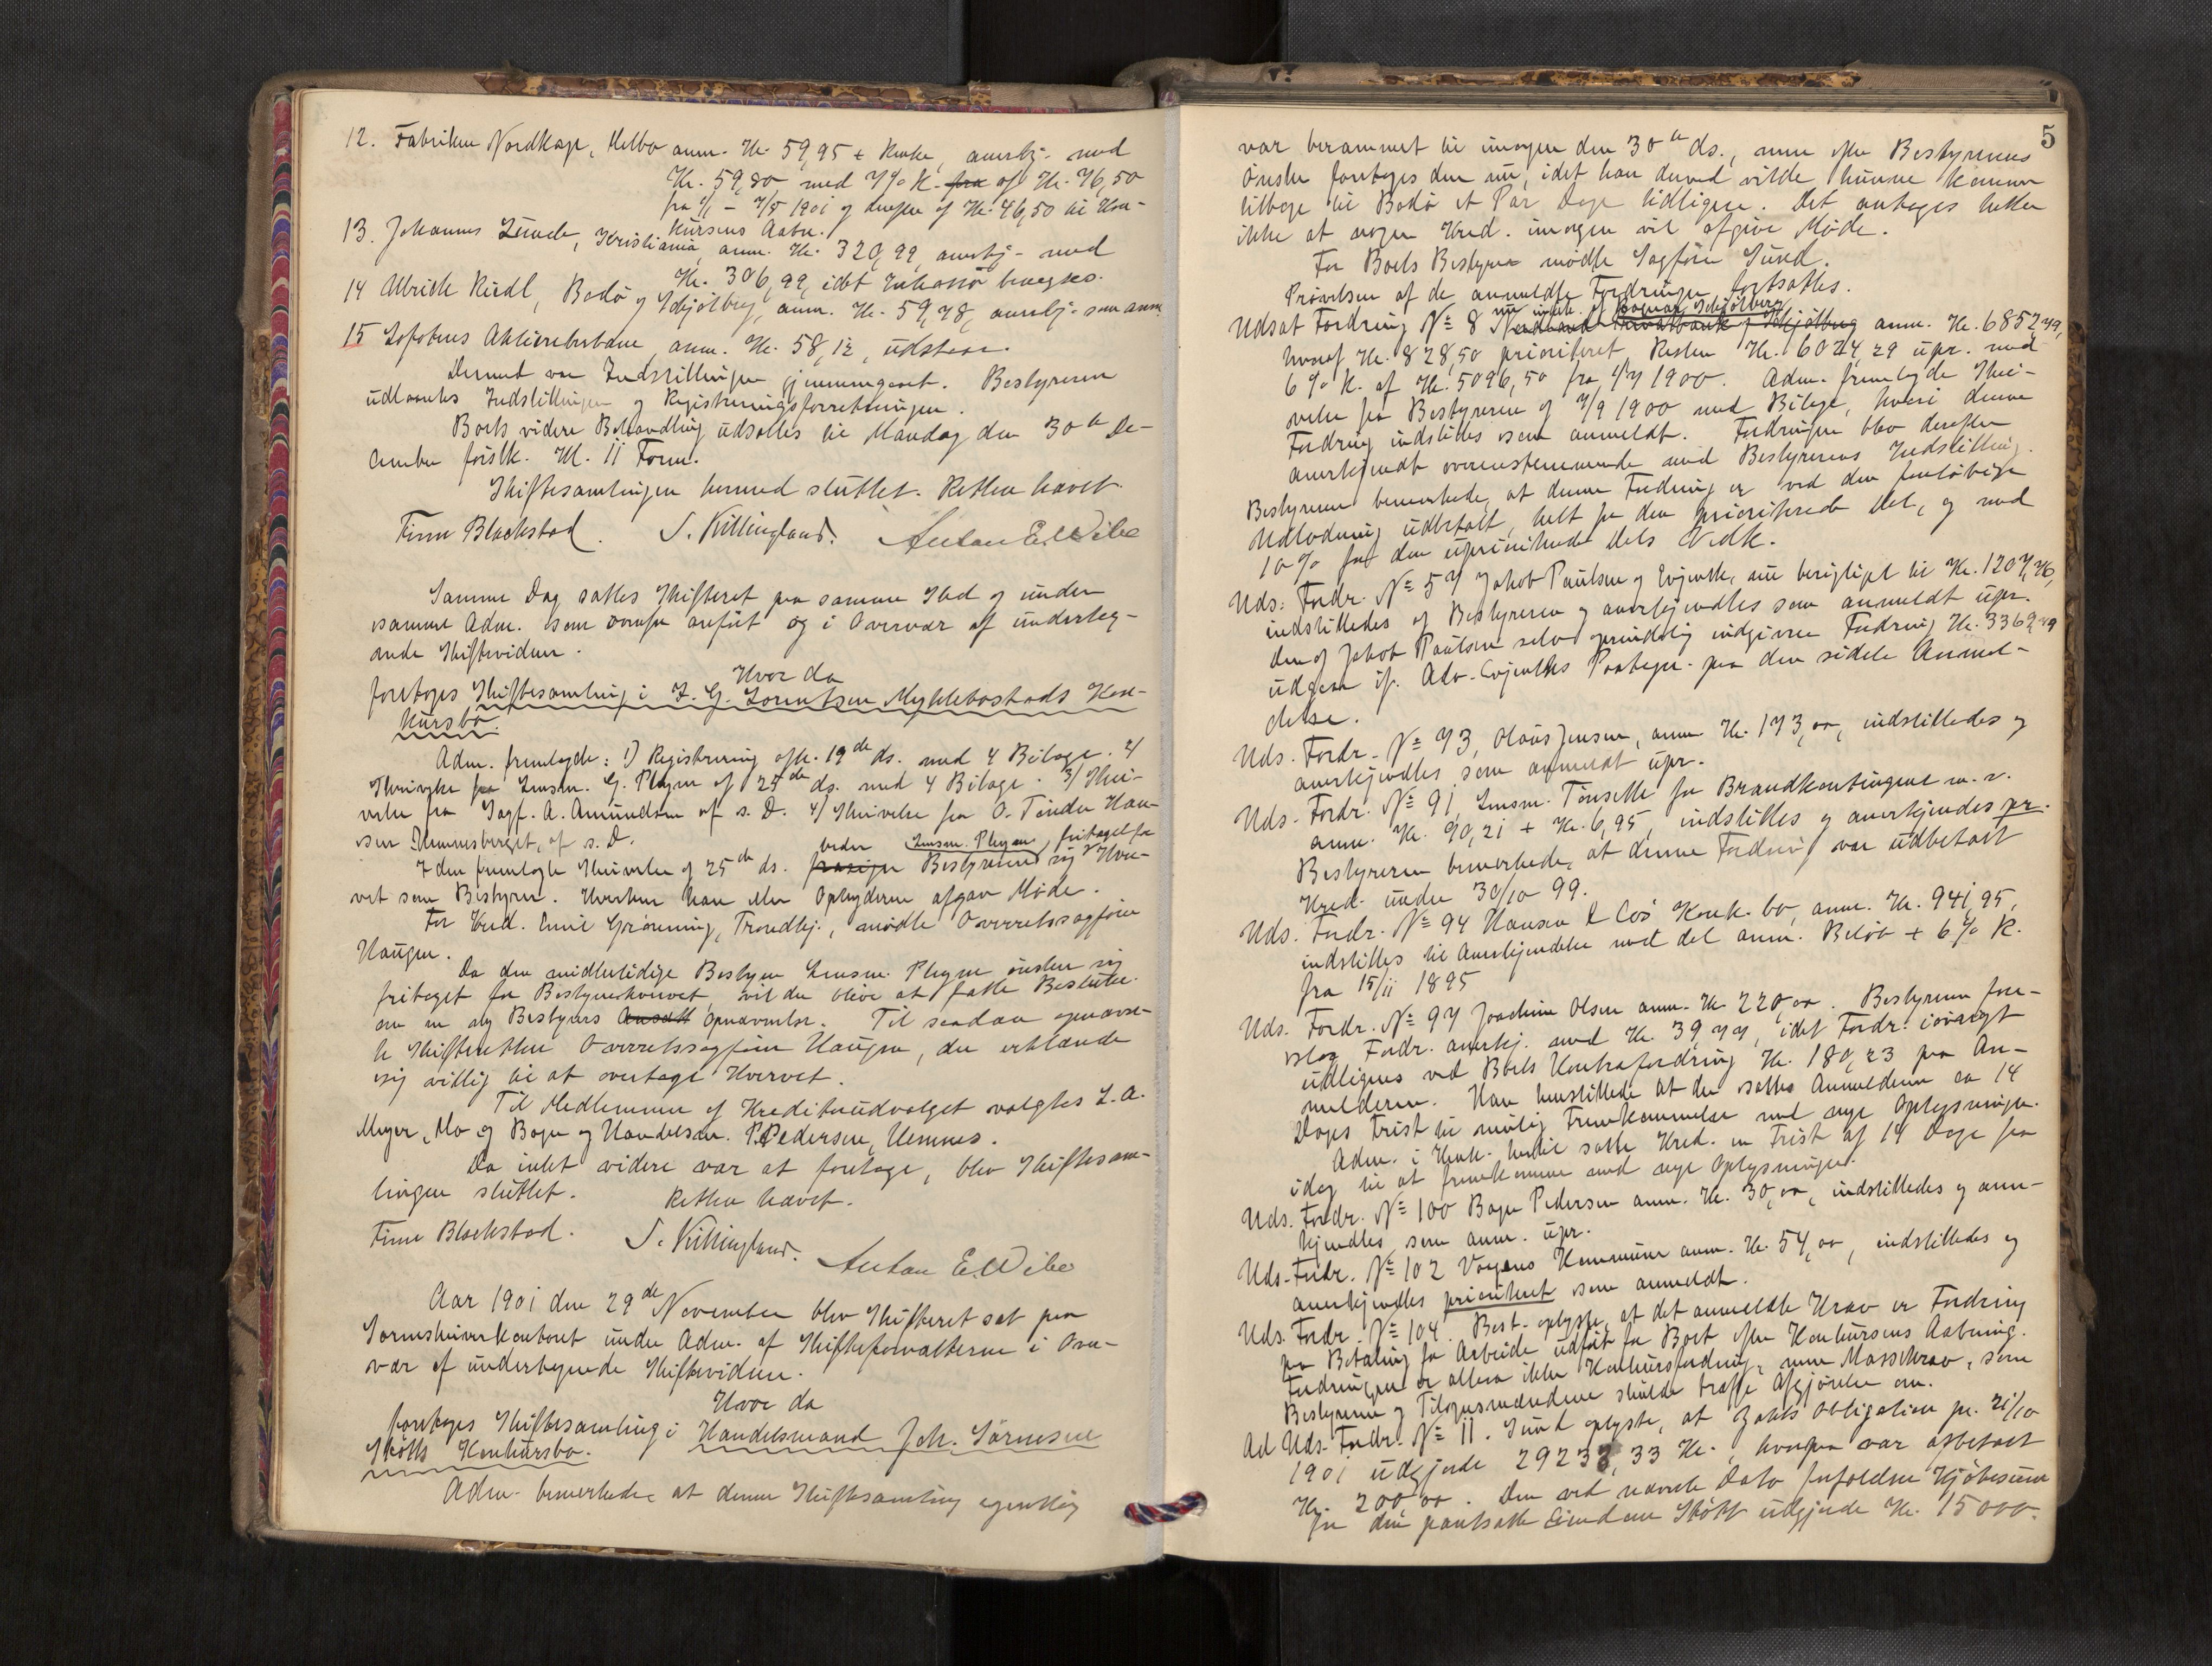 12. Fabriken Nordkap, Melbo anm. Kr. 59,95 + Renter, anerkj. med
Kr. 59,80 med 7% R. fra af Kr. 76,50
fra 1/1 - 7/5 1901 og derefter af Kr. 46,50 til Kon-
kursens Aabn.
13. Johannes Lunde, Kristiania, anm. Kr. 320,99, anerkj. med
Kr. 306,99, idet Inkasso
14 Ulrich Riedl, Bodø og Schjølberg, anm. Kr. 59,78, anerkj. som anm.
15 Lofotens Aktierederbane, anm. Kr. 58,12, udstaar.
Dermed var Indstillingen gjennemgaaet. Bestyreren
udlaantes Indstillingen og Registreringsforretningen.
Boets videre Behandling udsattes til Mandag den 30te De-
cember førstk. Kl. 11 Form.
Skiftesamlingen hermed sluttet. Retten hævet.
Finn Blackstad. S. Killingland. Anton E. Wibe
Samme Dag sattes Skifteret paa samme Sted og under
samme Adm. som ovenfor anført og i Overvær af underteg-
nede Skiftevidner.
Hvor da
foretoges Skiftesamling i J. G. Lorentsen Myklebostads Kon-
kursbo.
Adm. fremlagde: 1) Registrering afh. 19de ds. med 4 Bilage. 2/
Skrivelse fra Lensm. G. Plugm af 25de ds. med 4 Bilage. 3/ Skri-
velse fra Sagf. A. Amundsen af s. D. 4/ Skrivelse fra O. Tinder Han-
sen Hemnesberget, af s. D.
beder Lensm. Plugm fritaget for
I den fremlagte Skrivelse af 25de ds. Bestyreren sig Hver-
vet som Bestyrer. Hverken han eller Opbyderen afgav Møde.
For Kred. Emil Grønning, Trondhj., mødte Overretssagfører
Haugen.
Da den midlertidige Bestyrer Lensm. Plugm ønsker sig
fritaget for Bestyrerhvervet, vil der blive at fatte Beslutn.
om en ny Bestyrers Ansætt Opnævnelse. Til saadan opnævn-
te Skifteretten Overretssagfører Haugen, der erklærede
sig villig til at overtage Hvervet.
Til Medlemmer af Kreditorudvalget valgtes L. A.
Meyer, Mo og Bager og Handelsm. P. Pedersen, Hemnes.
Da intet videre var at foretage, blev Skiftesam-
lingen sluttet. Retten hævet.
Finn Blackstad. S. Killingland. Anton E. Wibe
Aar 1901 den 29de November blev Skifteret sat paa
Sorenskriverkontoret under Adm. af Skifteforvalteren i Over-
vær af undertegnede Skiftevidner.
Hvor da
foretoges Skiftesamling i Handelsmand Joh. Sørensen
Støtts Konkursbo.
Adm. bemerkede at denne Skiftesamling egentlig
5
var berammet til imorgen den 30te ds., men efter Bestyrerens
Ønske foretages den nu, idet han derved vilde kunne komme
tilbage til Bodø et Par Dage tidligere. Det antages heller
ikke at nogen Kred. imorgen vil afgive Møde.
For Boets Bestyrer mødte Sagfører Sund.
Prøvelsen af de anmeldte Fordringer fortsattes.
nu indeh. af Ragnar Schjølberg
Udsat Fordring № 8 Nordlands Privatbank v/ Schjølberg anm. Kr. 6852,79,
hvoraf Kr. 828,50 prioriteret Resten Kr. 6024,29 upr. med
6% R. af Kr. 5096,50 fra 1/7 1900. Adm. fremlagde Skri-
velse fra Bestyreren af 7/9 1900 med Bilage, hvori denne
Fordring indstilles som anmeldt. Fordringen blev derefter
anerkjendt overensstemmende med Bestyrerens Indstilling.
Bestyreren bemerkede, at denne Fordring er ved den foreløbige
Udlodning udbetalt, helt for den prioriterede Del, og med
10% for den uprioriterede Dels Vedk.
Uds: Fordr. № 57 Jakob Paulsen v/ Evjenth, nu berigtiget til Kr. 1207,76,
indstilledes af Bestyreren og anerkjendtes som anmeldt upr.
Den af Jakob Paulsen selv oprindelig indgivne Fordring Kr. 3369,49
udgaar if. Adv. Evjenths Paategn. paa den sidste Anmel-
delse.
Uds. Fordr. № 73, Olaus Jensen, anm. Kr. 173,00, indstilledes og
anerkjendtes som anmeldt upr.
Uds. Fordr. № 91 Lensm. Tønseth for Brandkontingent m. v.
anm. Kr. 90,21 + Kr. 6,95, indstilles og anerkjendes pr.
Bestyreren bemerkede, at denne Fordring var udbetalt
Kred. under 30/10 99.
Uds. Fordr. № 94 Hansen & Co's Konk. bo, anm. Kr. 941,95,
indstilles til Anerkjendelse med det anm. Beløb + 6% R.
fra 15/11 1895
Uds. Fordr. № 97 Joachim Olsen anm. Kr. 220,00. Bestyreren fore-
slog Fordr. anerkj. med Kr. 39,77, idet Fordr. iøvrigt
udlignes ved Boets Kontrafordring Kr. 180,23 paa An-
melderen. Han henstillede at der sattes Anmelderen en 14
Dages Frist til mulig Fremkommelse med nye Oplysninger.
Adm. i Henh. hertil satte Kred. en Frist af 14 Dage fra
idag til at fremkomme med nye Oplysninger.
Uds. Fordr. № 100 Bager Pedersen anm. Kr. 30,00, indstilledes og aner-
kjendtes som anm. upr.
Uds. Fordr. № 102 Vaagans Kommune anm. Kr. 54,00, indstilledes og
anerkjendtes prioriteret som anmeldt.
Uds. Fordr. № 104. Best. oplyste, at det anmeldte Krav er Fordring
paa Betaling for Arbeide udført for Boet efter Konkursens Aabning.
Fordringen er altsaa ikke Konkursfordring, men Massekrav, som
Bestyreren og Tilsynsmændene skulde træffe Afgjørelse om.
Ad Uds. Fordr. № 11. Sund oplyste, at Zahls Obligation pr. 21/10
1901 udgjorde 29233,33 Kr., hvorpaa var afbetalt
Kr. 200,00. Den ved nævnte Dato forfaldne Kjøbesum
for den pantsatte Eiendom Støtt udgjorde Kr. 15000.